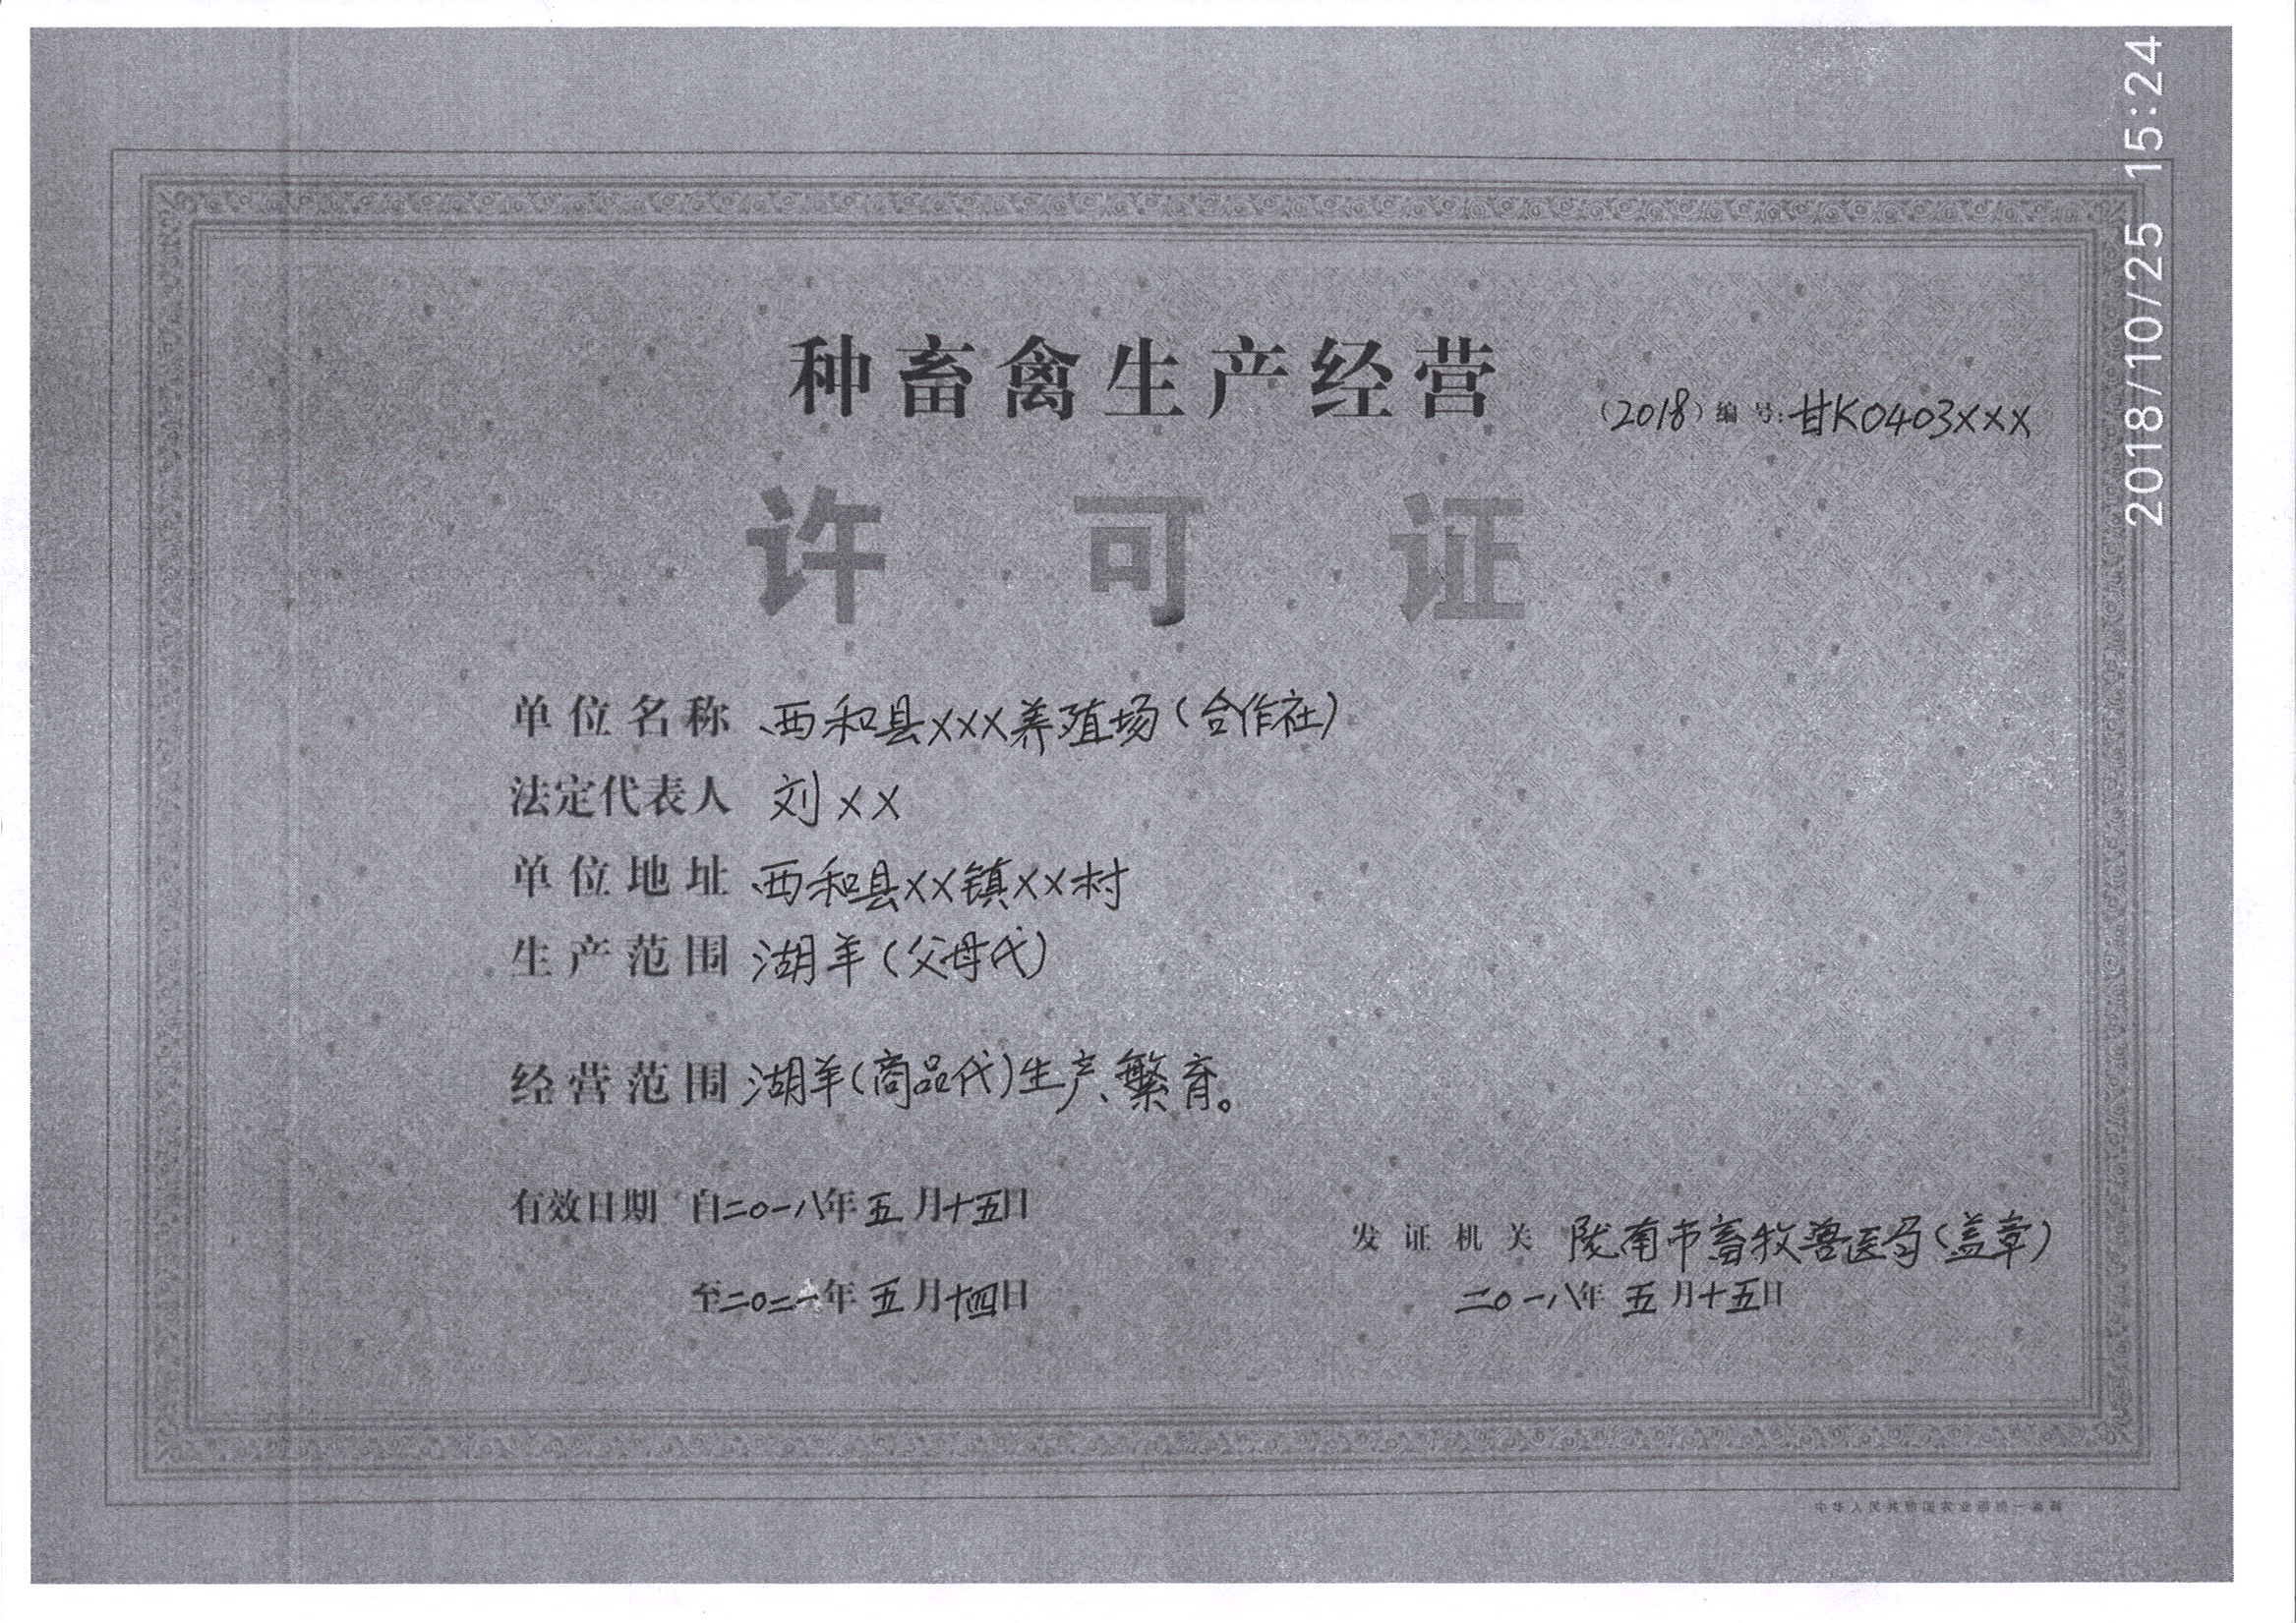 2018/10/25 15:24
种畜禽生产经营
（2018）编号:甘K0403XXX
许可证
单位名称 西和县XXX养殖场（合作社）
法定代表人 刘XX
单位地址 西和县XX镇XX村
生产范围 湖羊（父母代）
经营范围 湖羊（商品代）生产、繁育。
有效日期 自二〇一八年五月十五日
至二〇二一年五月十四日
发证机关 陇南市畜牧兽医局（盖章）
二〇一八年五月十五日